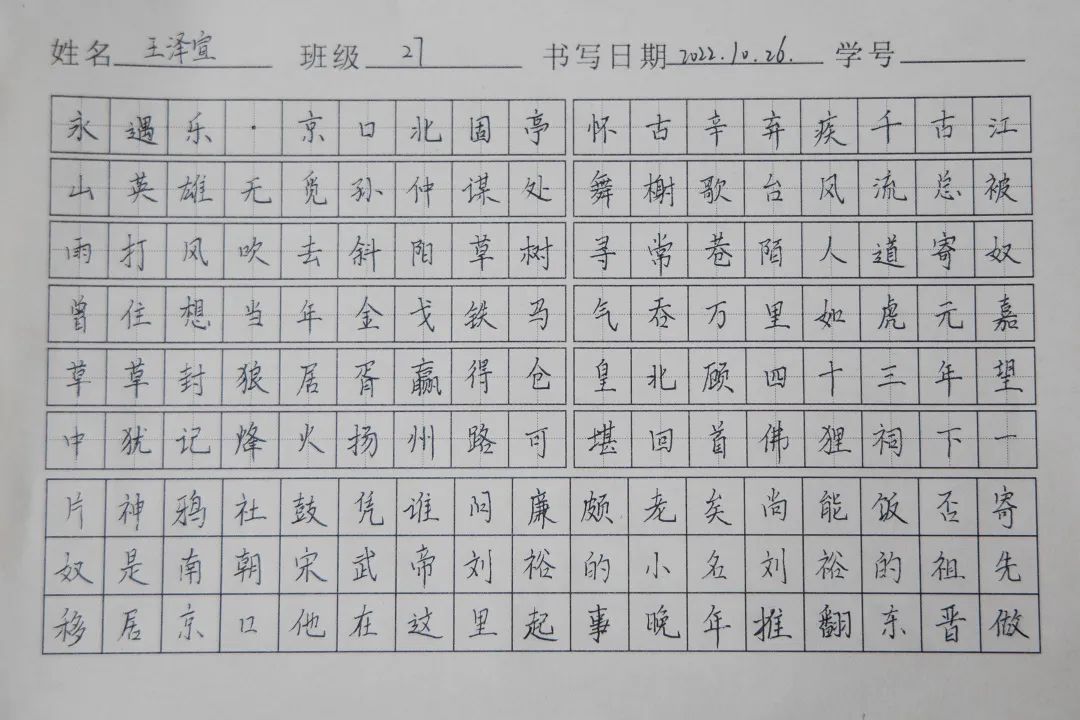 姓名 王泽宣 班级 27 书写日期 2022.10.26. 学号
永遇乐·京口北固亭怀古辛弃疾千古江
山英雄无觅孙仲谋处舞榭歌台风流总被
雨打风吹去斜阳草树寻常巷陌人道寄奴
曾住想当年金戈铁马气吞万里如虎元嘉
草草封狼居胥赢得仓皇北顾四十三年望
中犹记烽火扬州路可堪回首佛狸祠下一
片神鸦社鼓凭谁问廉颇老矣尚能饭否寄
奴是南朝宋武帝刘裕的小名刘裕的祖先
移居京口他在这里起事晚年推翻东晋做